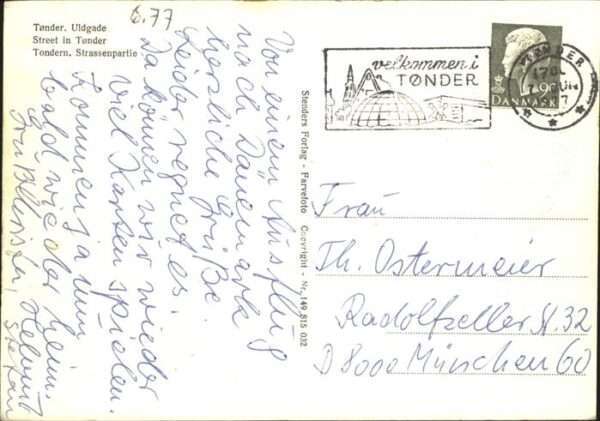 Tønder. Uldgade
Street in Tønder
Tondern. Strassenpartie
6.77
velkommen i
TØNDER
TØNDER
DANMARK
Stenders Forlag - Farvefoto Copyright - Nr. 149 815 032
Von einem Ausflug
nach Dänemark
herzliche Grüße.
Leider regnet es.
Da können wir wieder
viel Karten spielen.
Kommen ja nun
bald wieder heim.
Helmut
Stefan
Frau
Th. Ostermeier
Radolfzeller St. 32
D 8000 München 60